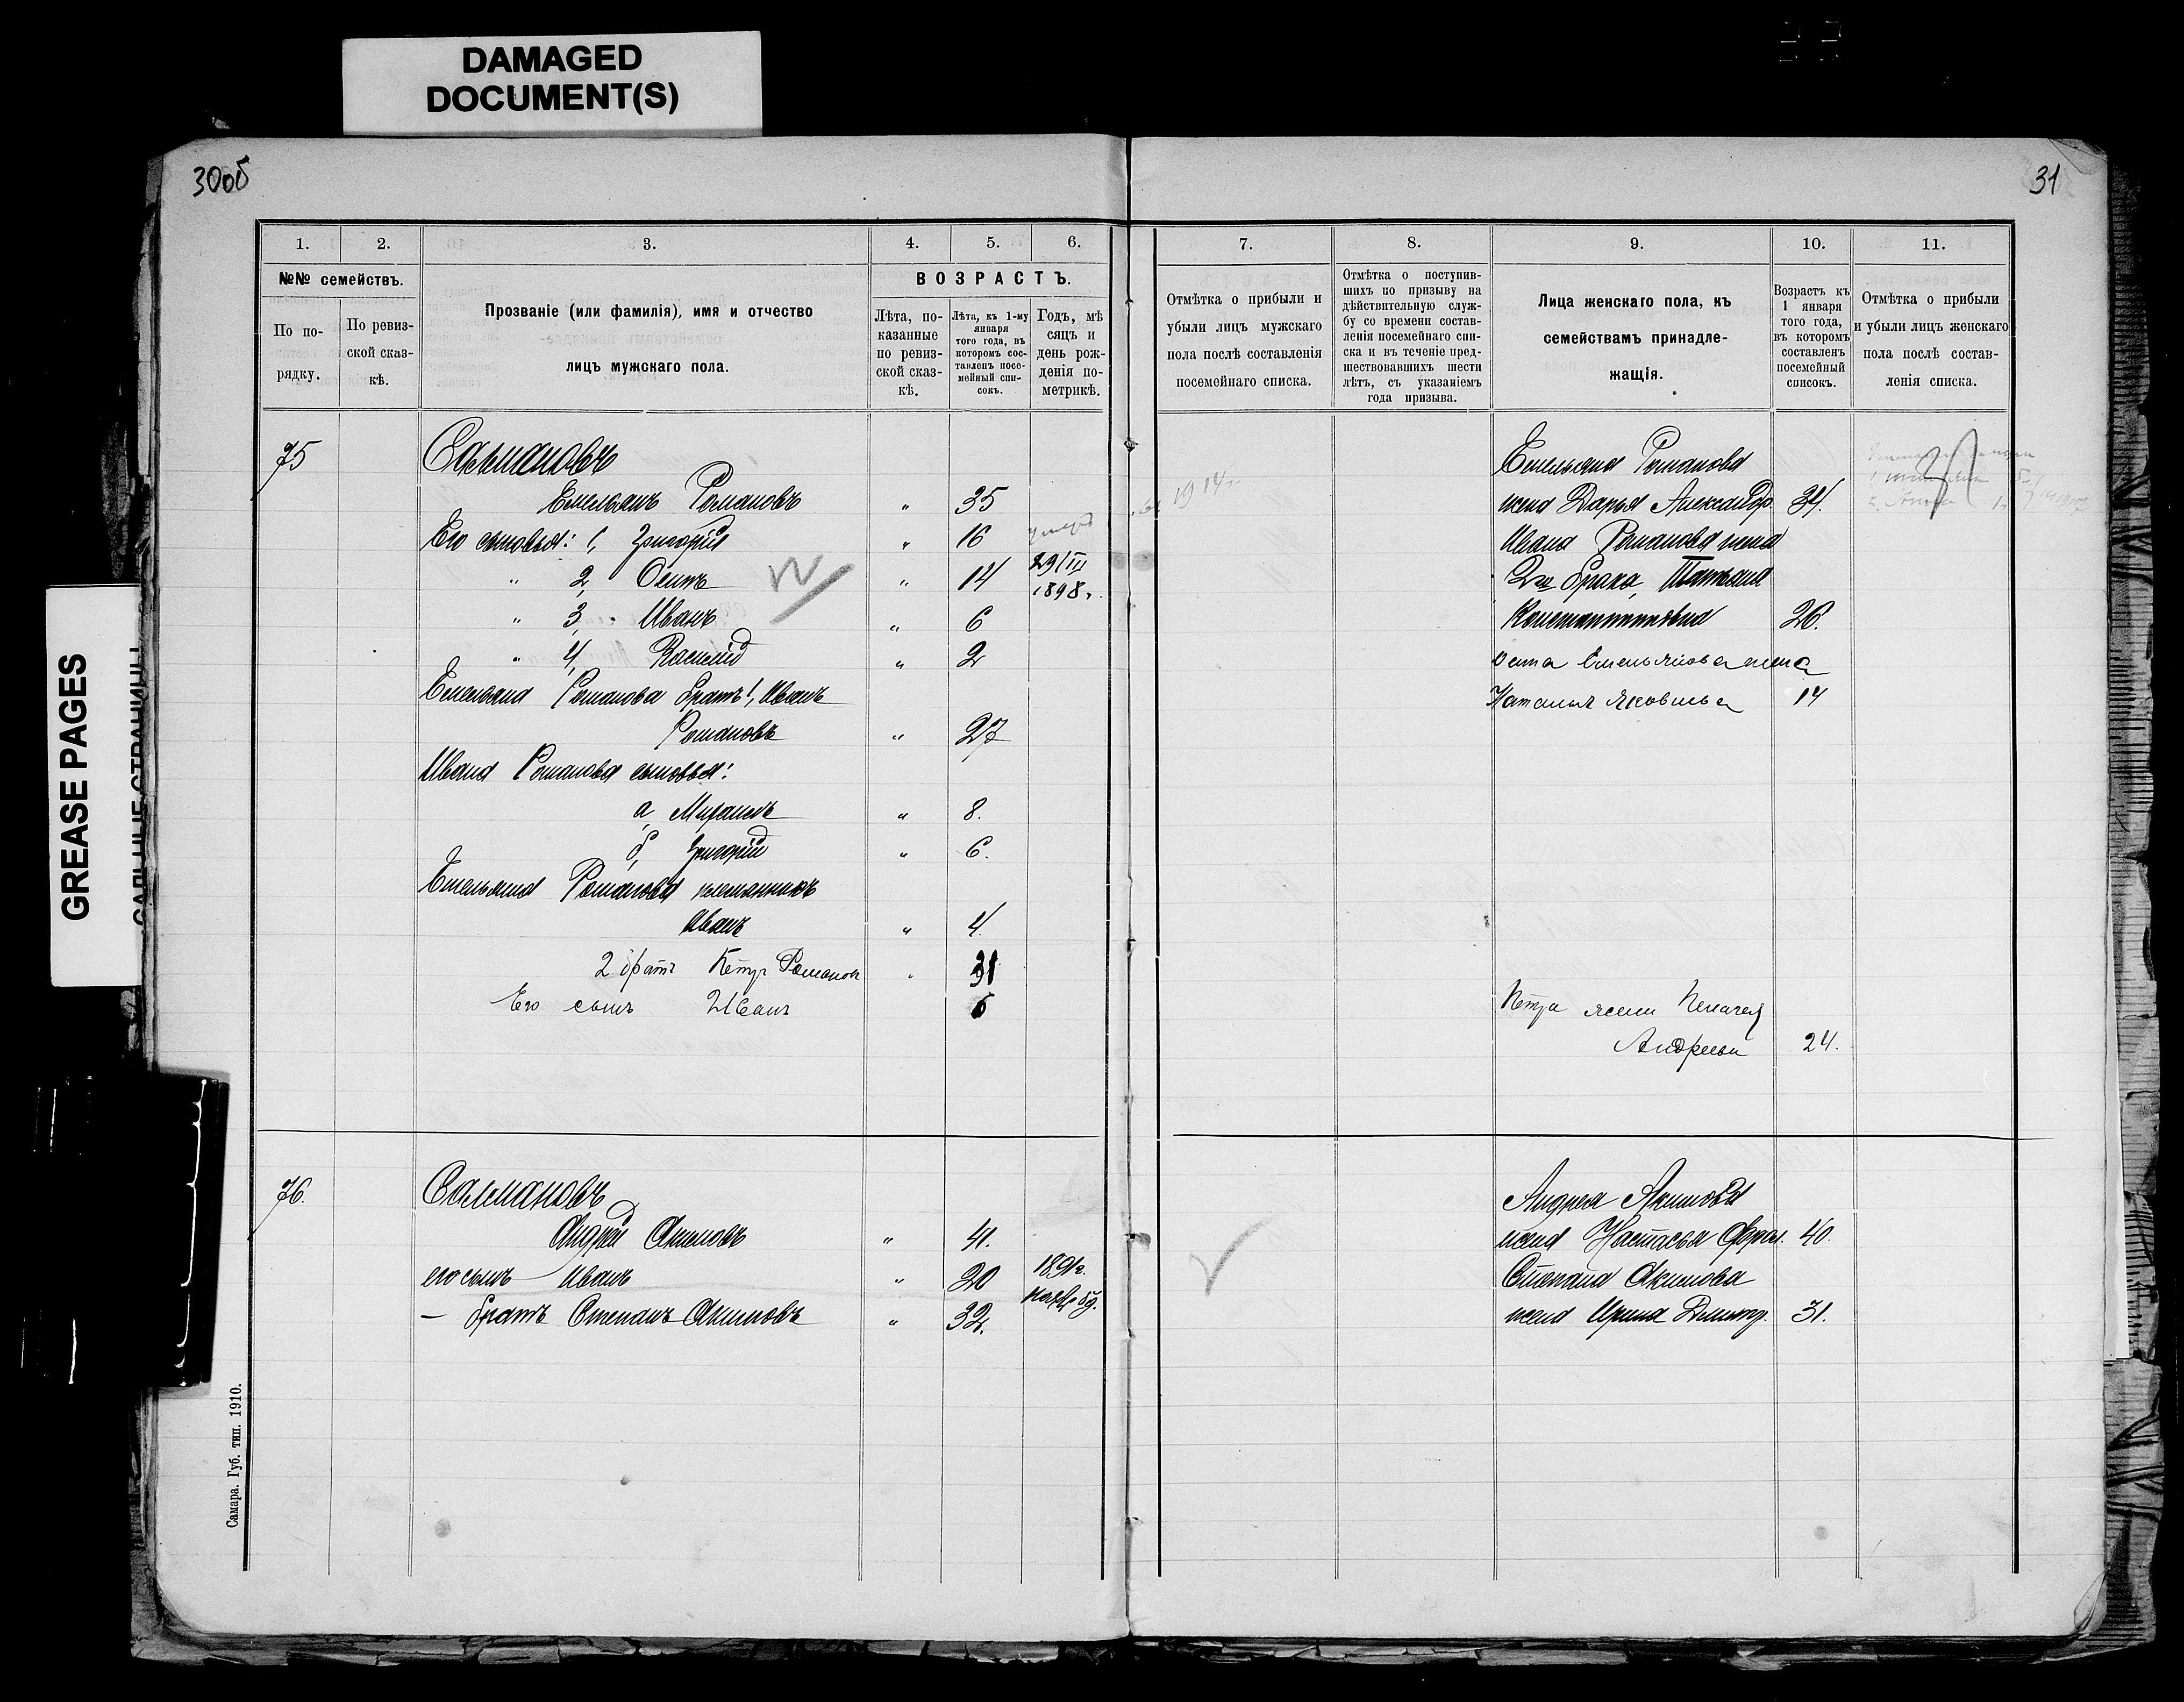 DAMAGED
DOCUMENT(S)
GREASE PAGES
30об
31
1.
2.
3.
4.
5.
6.
№№ семействъ.
По по-
рядку.
По ревиз-
ской сказ-
кѣ.
Прозваніе (или фамилія), имя и отчество
лицъ мужскаго пола.
ВОЗРАСТЪ.
Лѣта, по-
казанныe
по ревиз-
ской сказ-
кѣ.
Лѣта, къ 1-му
января
того года, въ
которомъ сос-
тавленъ посе-
мейный спи-
сокъ.
Годъ, мѣ
сяцъ и
день рож-
денія по-
метрикѣ.
75
Салмановъ
Емельянъ Романовъ " 35
Его сыновья: 1, Григорій " 16 умеръ
" 2, Осипъ " 14 29/III
1898г.
" 3, Иванъ " 6
" 4, Василій " 2
Емельяна Романова братъ 1, Иванъ
Романовъ " 27
Ивана Романова сыновья:
а, Михаилъ " 8.
б, Григорій " 6.
Емельяна Романова племянникъ
Иванъ " 4.
2 братъ Петръ Романовъ " 31
Его сынъ Иванъ 6
76.
Салмановъ
Андрей Акимовъ " 41.
его сынъ Иванъ " 20 1891г.
— братъ Степанъ Акимовъ " 32.
Самара. Губ. тип. 1910.
7.
8.
9.
10.
11.
Отмѣтка о прибыли и
убыли лицъ мужскаго
пола послѣ составленія
посемейнаго списка.
Отмѣтка о поступив-
шихъ по призыву на
дѣйствительную служ-
бу со времени состав-
ленія посемейнаго спи-
ска и въ теченіе пред-
шествовавшихъ шести
лѣтъ, съ указаніемъ
года призыва.
Лица женскаго пола, къ
семействамъ принадле-
жащія.
Возрастъ къ
1 января
того года,
въ которомъ
составленъ
посемейный
списокъ.
Отмѣтка о прибыли
и убыли лицъ женскаго
пола послѣ состав-
ленія списка.
1914г.
Емельяна Романова
жена Дарья Александр. 34.
Ивана Романова жена
2го брака, Татьяна
Константиновна 26.
Осипа Емельянова жена
Наталья Яковлева 14
Петра жена Пелагея
Андреева 24.
Андрея Акимова
жена Настасья Фрол. 40.
Степана Акимова
жена Ирина Димитр. 31.